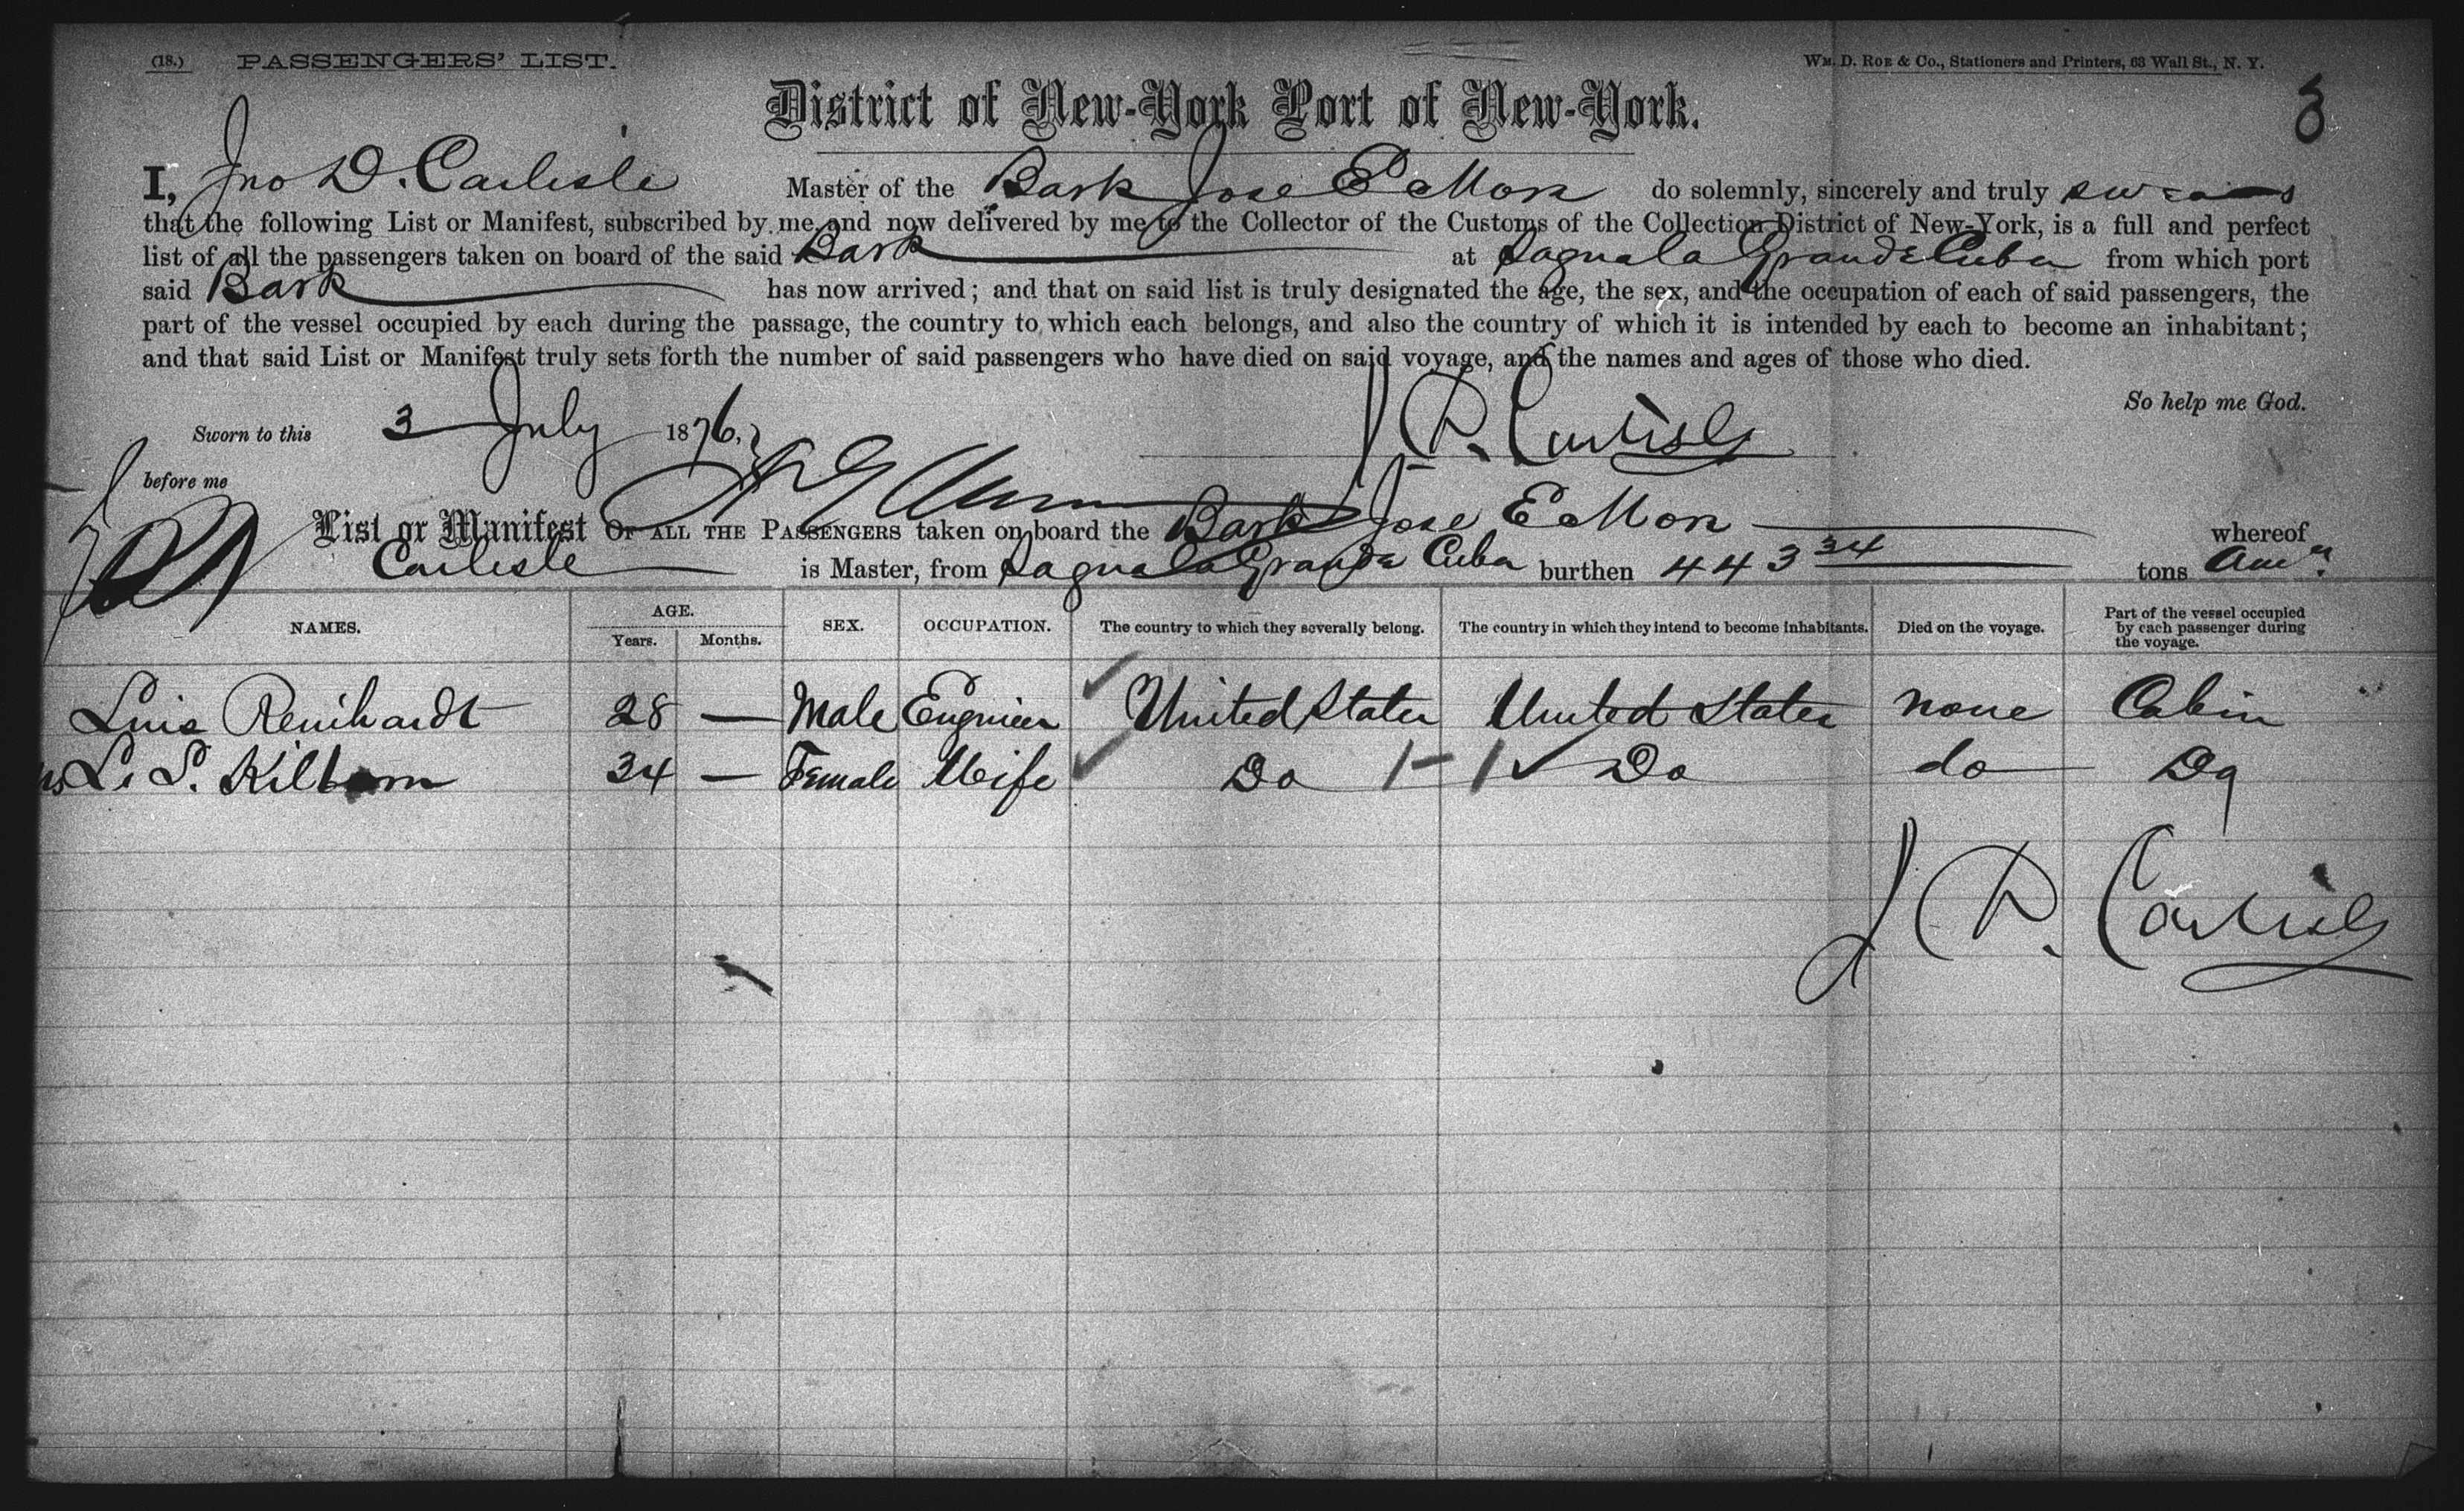 (18.) PASSENGERS' LIST.
WM. D. ROE & CO., Stationers and Printers, 63 Wall St., N. Y.
8
District of New-York Port of New-York.
I, Jno D. Carlisle Master of the Bark Jose E More do solemnly, sincerely and truly swear
that the following List or Manifest, subscribed by me and now delivered by me to the Collector of the Customs of the Collection District of New-York, is a full and perfect
list of all the passengers taken on board of the said Bark at Sagua la Grande Cuba from which port
said Bark has now arrived; and that on said list is truly designated the age, the sex, and the occupation of each of said passengers, the
part of the vessel occupied by each during the passage, the country to which each belongs, and also the country of which it is intended by each to become an inhabitant;
and that said List or Manifest truly sets forth the number of said passengers who have died on said voyage, and the names and ages of those who died.
So help me God.
Sworn to this 3 July 1876, J D. Carlisle
before me
List or Manifest OF ALL THE PASSENGERS taken on board the Bark Jose E More whereof
Carlisle is Master, from Sagua la Grande Cuba burthen 443 34 tons Amn
NAMES. AGE. Years. Months. SEX. OCCUPATION. The country to which they severally belong. The country in which they intend to become inhabitants. Died on the voyage. Part of the vessel occupied by each passenger during the voyage.
Luis Reinhardt 28 — Male Engineer United States United States none Cabin
L. S. Kilborn 34 — Female Wife Do 1-1 Do do Do
J D. Carlisle